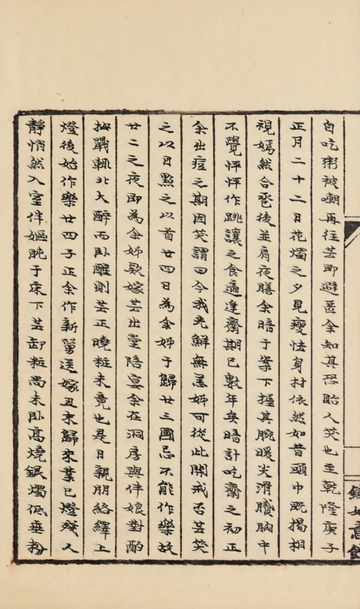 自吃粥被嘲再往芸即避匿余知其恐貽人笑也至乾隆庚子
正月二十二日花燭之夕見瘦怯身材依然如昔頭巾既揭相
視嫣然合巹後並肩夜膳余暗于案下握其腕暖尖滑膩胸中
不覺怦怦作跳讓之食適逢齋期已數年矣暗計吃齋之初正
余出痘之期因笑謂曰今我光鮮無恙姊可從此開戒否芸笑
之以目點之以首廿四日為余姊于歸廿三國忌不能作樂故
廿二之夜即為余姊欵嫁芸出堂陪宴余在洞房與伴娘對酌
拇戰輒北大醉而卧醒則芸正曉粧未竟也是日親朋絡繹上
燈後始作樂廿四子正余作新舅送嫁丑末歸來業已燈殘人
靜悄然入室伴嫗盹于床下芸卸粧尚未卧高燒銀燭低垂粉